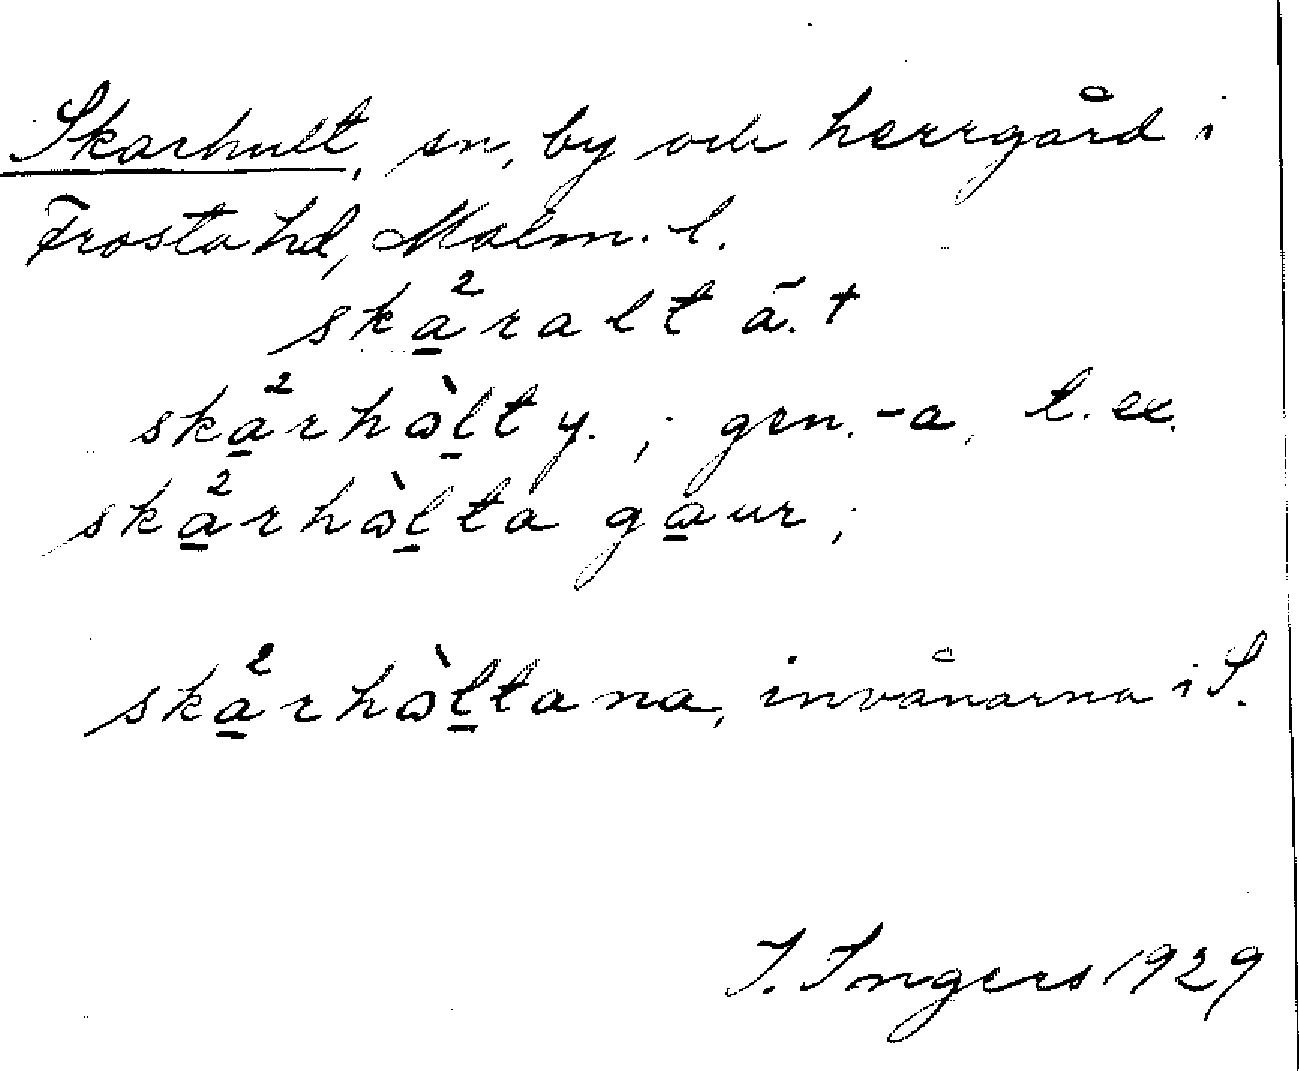 Skarhult, sn, by och herrgård i
Frosta hd, Malm. l.
ska̲²ralt ä. +
ska̲²rhɷ̀l̲t y. ; gen. -a, t. ex.
ska̲²rhɷ̀l̲ta ga̲ur ;
ska̲²rhɷ̀l̲tana, invånarna i S.
I. Ingers 1929